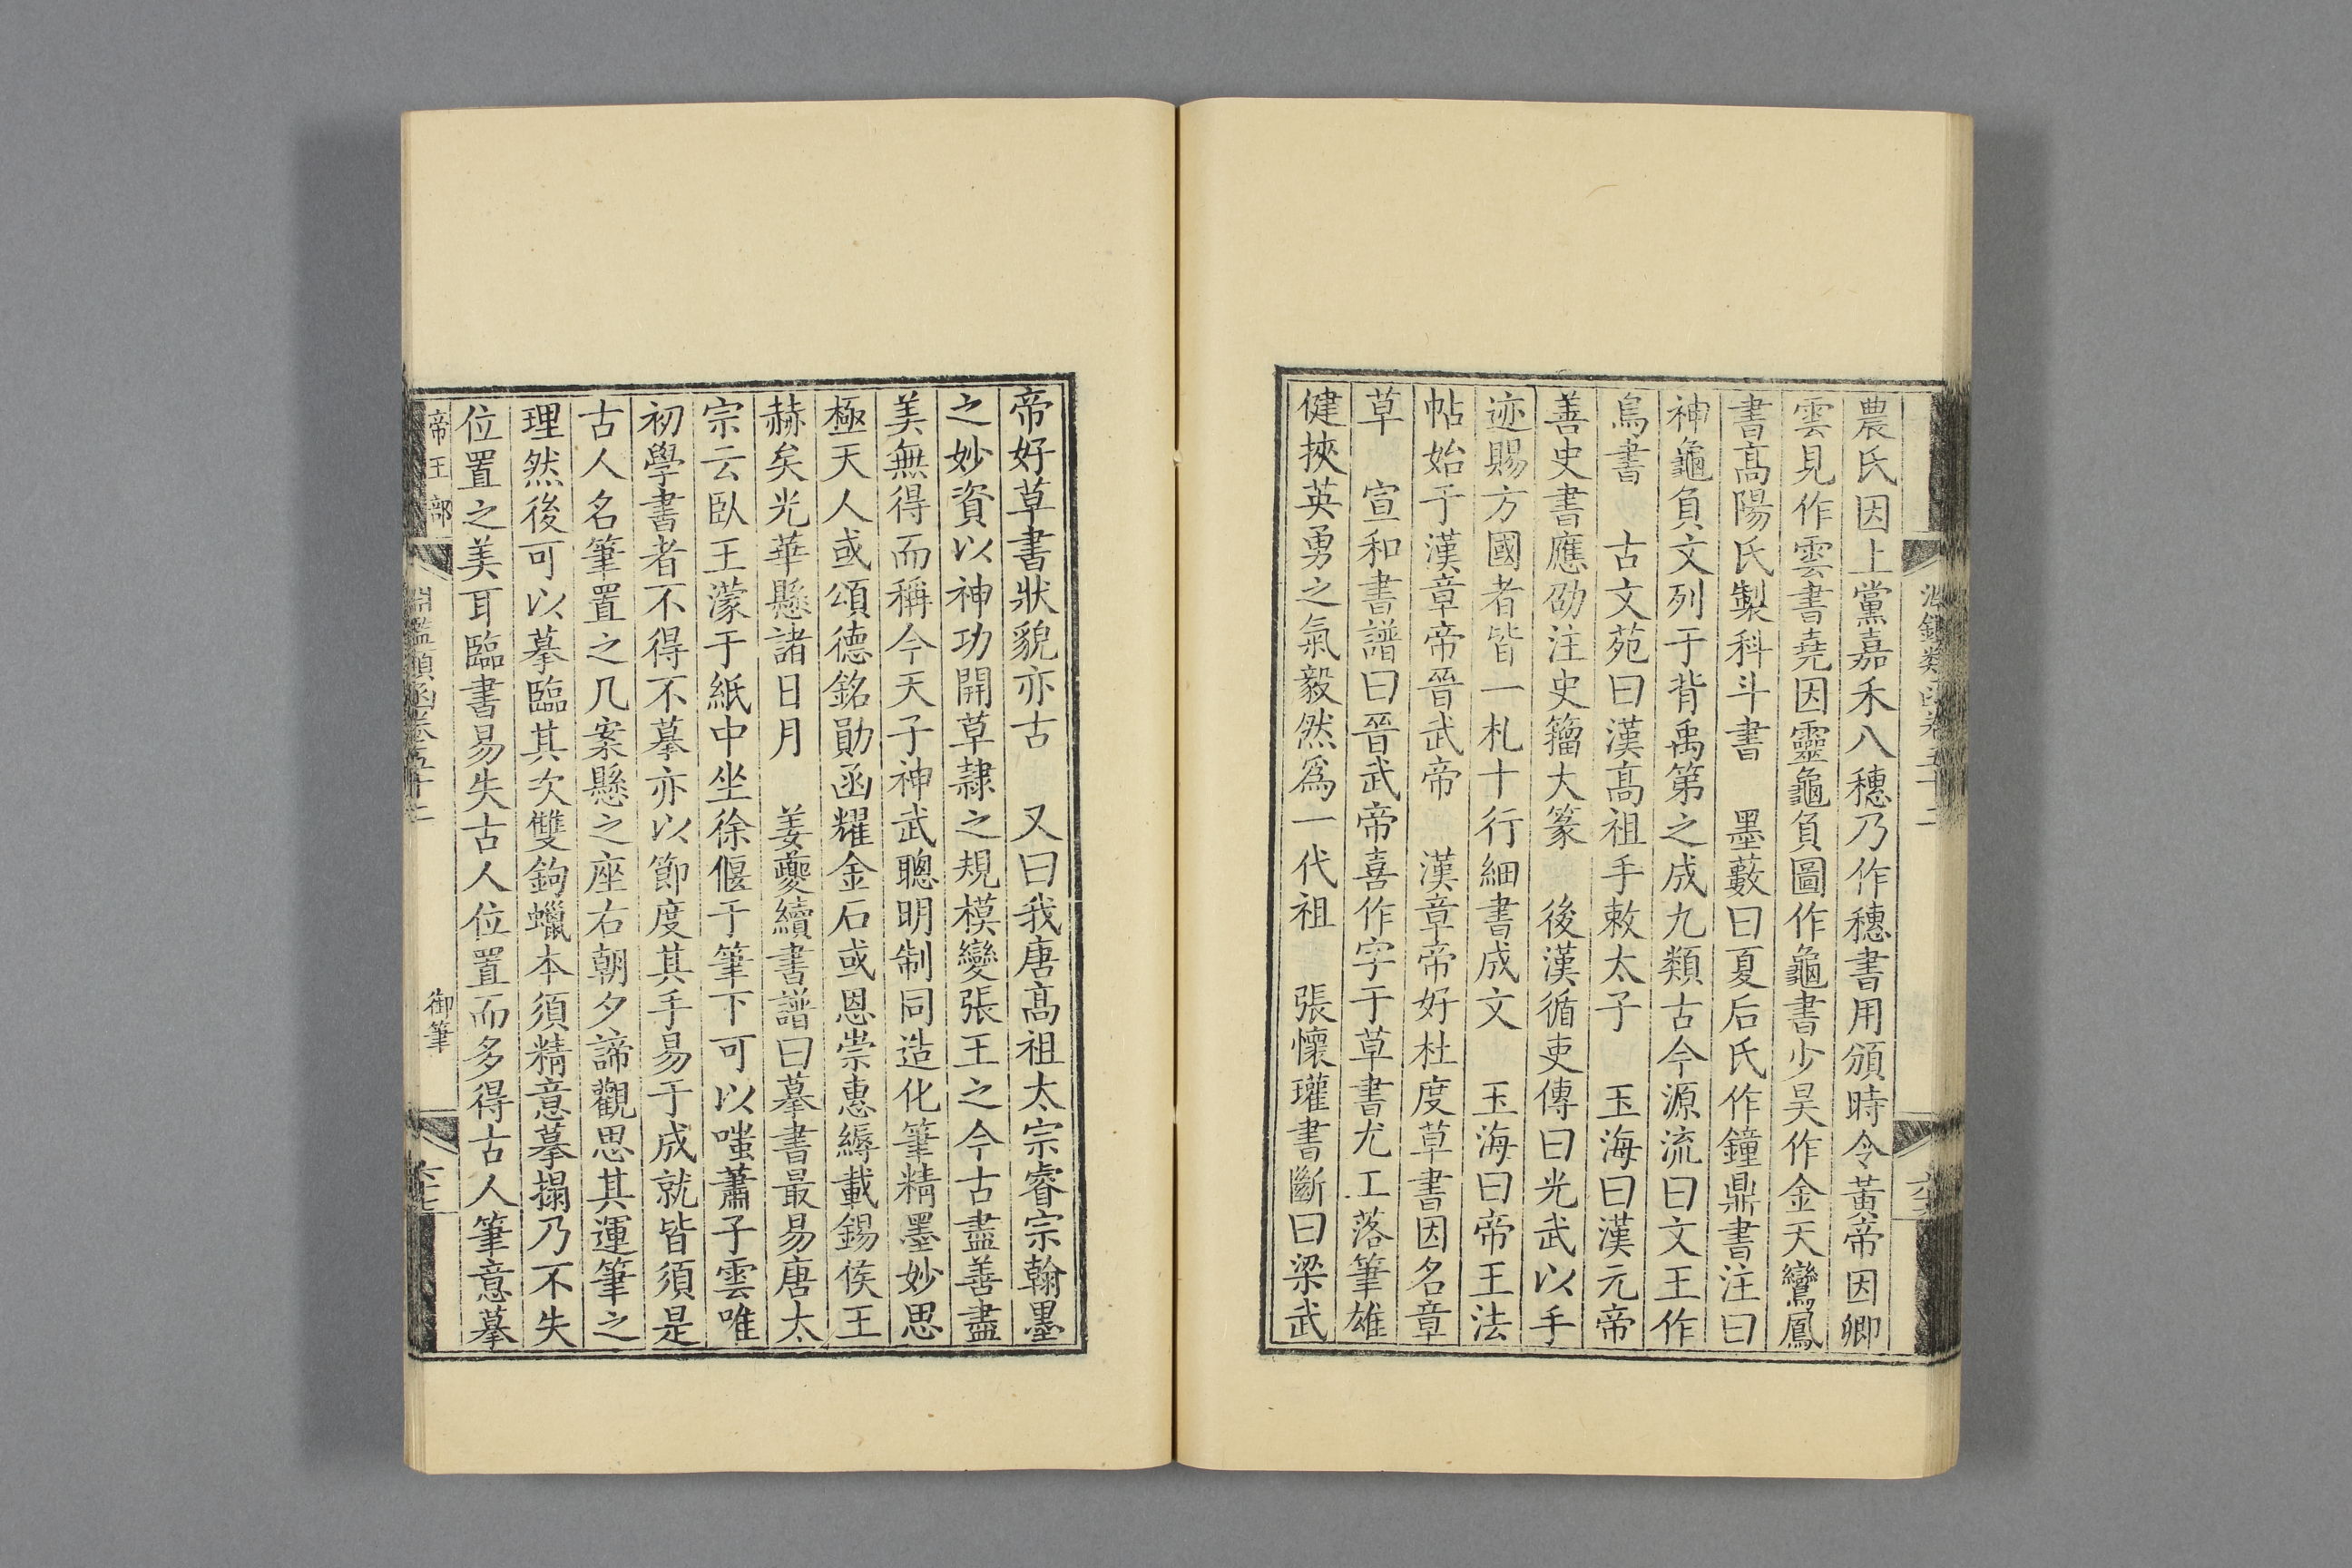 農氏因上黨嘉禾八穗乃作穗書用頒時令黃帝因卿
雲見作雲書堯因靈龜負圖作龜書少昊作金天鸞鳳
書高陽氏製科斗書　墨藪曰夏后氏作鐘鼎書注曰
神龜負文列于背禹第之成九類古今源流曰文王作
鳥書　古文苑曰漢高祖手敕太子　玉海曰漢元帝
善史書應劭注史籀大篆　後漢循吏傳曰光武以手
迹賜方國者皆一札十行細書成文　玉海曰帝王法
帖始于漢章帝晉武帝　漢章帝好杜度草書因名章
草　宣和書譜曰晉武帝喜作字于草書尤工落筆雄
健挾英勇之氣毅然爲一代祖　張懷瓘書斷曰梁武
帝好草書狀貌亦古　又曰我唐高祖太宗睿宗翰墨
之妙資以神功開草隸之規模變張王之今古盡善盡
美無得而稱今天子神武聰明制同造化筆精墨妙思
極天人或頌德銘勛函耀金石或恩崇惠縟載錫侯王
赫矣光華懸諸日月　姜夔續書譜曰摹書最易唐太
宗云臥王濛于紙中坐徐偃于筆下可以嗤蕭子雲唯
初學書者不得不摹亦以節度其手易于成就皆須是
古人名筆置之几案懸之座右朝夕諦觀思其運筆之
理然後可以摹臨其次雙鉤蠟本須精意摹搨乃不失
位置之美耳臨書易失古人位置而多得古人筆意摹
帝王部
御筆